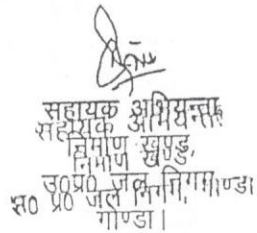 सहायक अभियन्ता
सहायक अभियन्ता
निर्माण खण्ड,
निर्माण खण्ड
उ0प्र0 जल निगम, गोण्डा
उ0 प्र0 जल निगम,
गोण्डा।